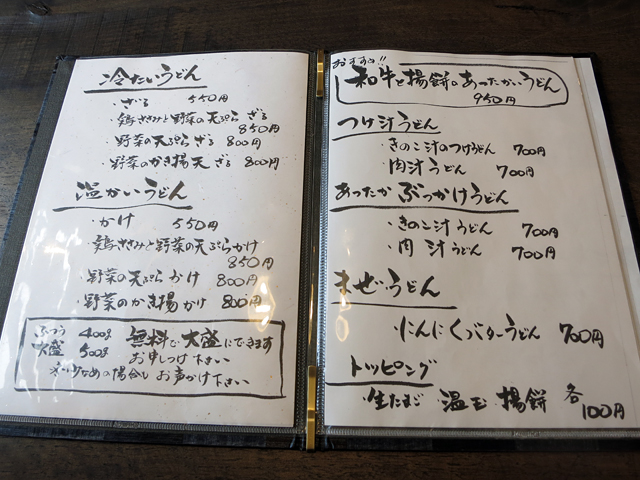 冷たいうどん
・ざる 550円
・鶏ささみと野菜の天ぷら ざる
850円
・野菜の天ぷら ざる 800円
・野菜のかき揚天 ざる 800円
温かいうどん
・かけ 550円
・鶏ささみと野菜の天ぷらかけ
850円
・野菜の天ぷら かけ 800円
・野菜のかき揚 かけ 800円
ふつう 400g 無料で大盛にできます
大盛 500g お申しつけ下さい
少なめの場合も お声かけ下さい
おすすめ!!
和牛と揚餅のあったかいうどん
950円
つけ汁うどん
・きのこ汁のつけうどん 700円
・肉汁うどん 700円
あったか ぶっかけうどん
・きのこ汁うどん 700円
・肉汁うどん 700円
まぜうどん
にんにくバターうどん 700円
トッピング
・生たまご 温玉 揚餅 各
100円